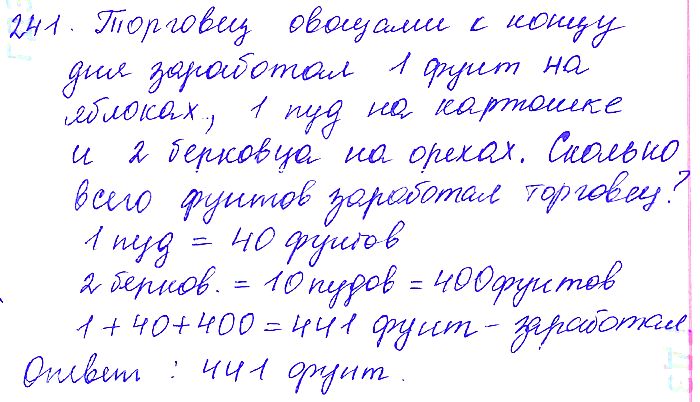 241. Торговец овощами к концу
дня заработал 1 фунт на
яблоках, 1 пуд на картошке
и 2 берковца на орехах. Сколько
всего фунтов заработал торговец?
1 пуд = 40 фунтов
2 берков. = 10 пудов = 400 фунтов
1 + 40 + 400 = 441 фунт - заработал
Ответ : 441 фунт.